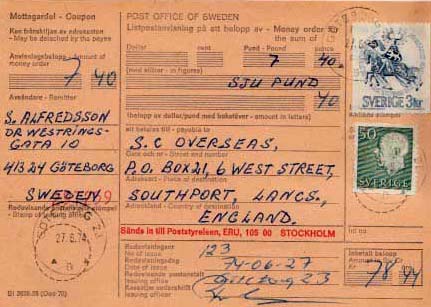 Mottagardel - Coupon
Kan frånskiljas av adressaten
- May be detached by the payee
Anvisningsbelopp - Amount of
money order
7 40
Avsändare - Remitter
S. ALFREDSSON
DR WESTRINGS-
GATA 10
413 24 GÖTEBORG
SWEDEN
- Stamp of issuing office
27.6.74
POST OFFICE OF SWEDEN
Utpostanvisning på ett belopp av - Money order for
the sum of
Dollar cent Pund - Pound pence
7 40
(med siffror - in figures)
SJU PUND
40
(belopp av dollar/pund med bokstäver - amount in letters)
att betalas till - payable to
S.C OVERSEAS,
P.O. BOX 21, 6 WEST STREET,
SOUTHPORT LANCS.,
Adressland - Country of destination
ENGLAND.
Sänds in till Poststyrelsen, ERU, 105 00 STOCKHOLM
Redovisningsnr
No of issue
123
Redovisningsdag
Date of issue
74-06-27
Redovisande postanstalt
Issuing office
Göteborg 23
Issuing officer
Inbetalt belopp
Amount paid
78 44
SVERIGE 3kr
50
SVERIGE